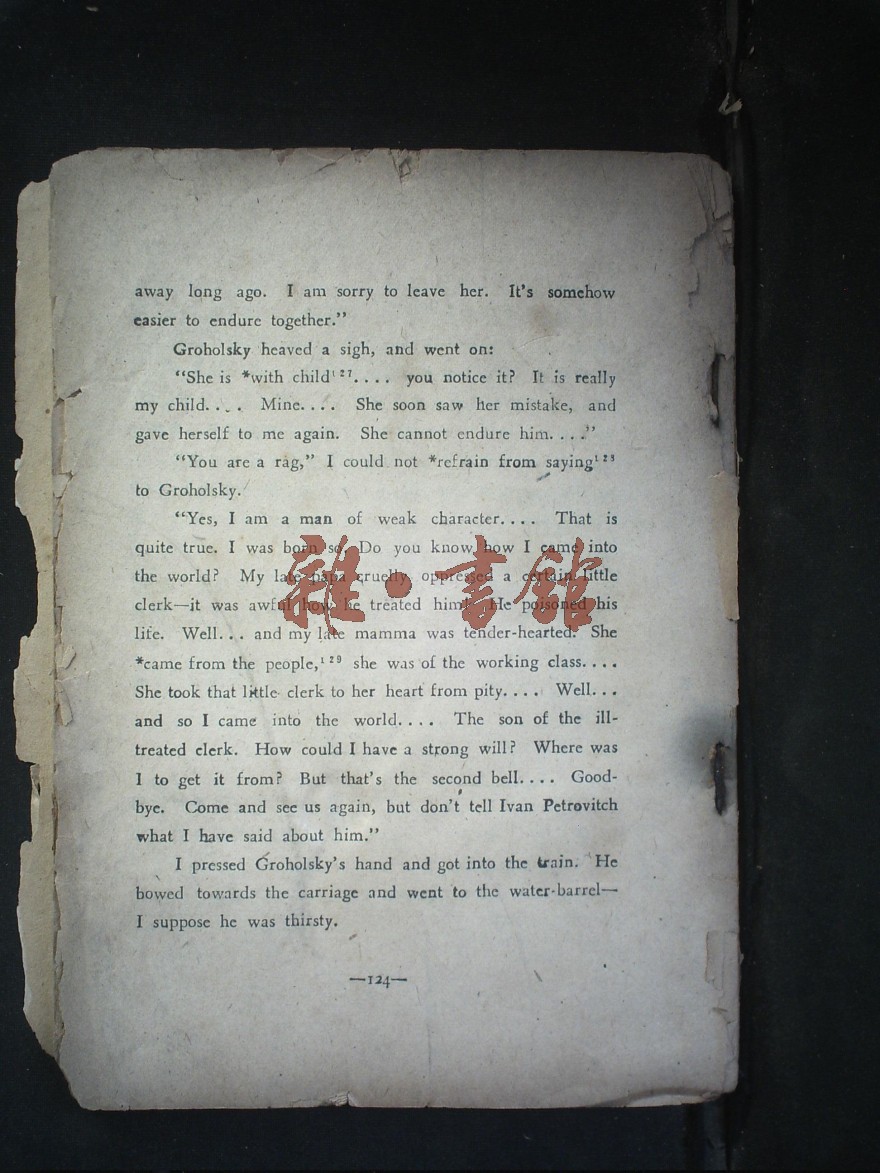 away long ago. I am sorry to leave her. It's somehow
easier to endure together.”
Groholsky heaved a sigh, and went on:
“She is *with child¹²⁷.... you notice it? It is really
my child.... Mine.... She soon saw her mistake, and
gave herself to me again. She cannot endure him....”
“You are a rag,” I could not *refrain from saying¹²⁸
to Groholsky.
“Yes, I am a man of weak character.... That is
quite true. I was born so. Do you know how I came into
the world? My late papa cruelly oppressed a certain little
clerk—it was awful how he treated him! He poisoned his
life. Well... and my late mamma was tender-hearted. She
*came from the people,¹²⁹ she was of the working class....
She took that little clerk to her heart from pity.... Well...
and so I came into the world.... The son of the ill-
treated clerk. How could I have a strong will? Where was
I to get it from? But that's the second bell.... Good-
bye. Come and see us again, but don't tell Ivan Petrovitch
what I have said about him.”
I pressed Groholsky's hand and got into the train. He
bowed towards the carriage and went to the water-barrel—
I suppose he was thirsty.
—124—
雜·書館